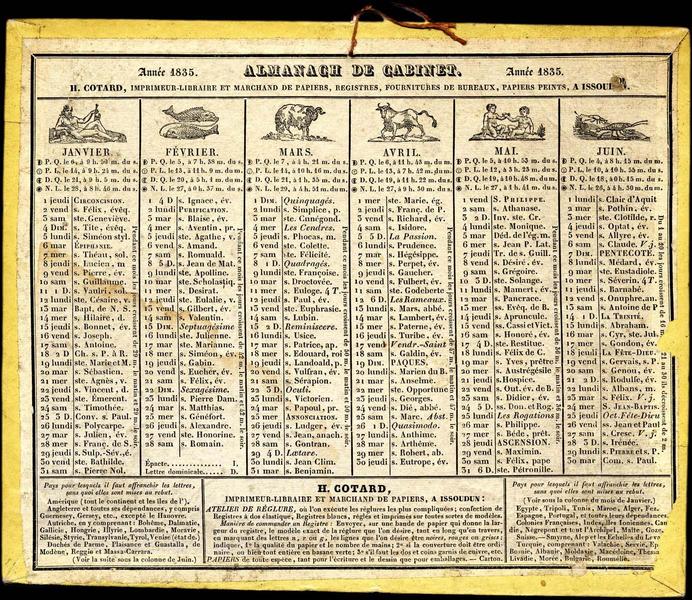 Année 1835.
ALMANACH DE CABINET.
Année 1835.
H. COTARD, IMPRIMEUR-LIBRAIRE ET MARCHAND DE PAPIERS, REGISTRES, FOURNITURES DE BUREAUX, PAPIERS PEINTS, A ISSOUDUN.
JANVIER.
1 jeudi CIRCONCISION.
2 vend s. Félix, évêq.
3 sam ste. Geneviève.
4 DIM. s. Tite, évêq.
5 lundi s. Siméon styl.
6 mar ÉPIPHANIE.
7 mer s. Théau, sol
8 jeudi s. Lucien, m
9 vend s. Pierre, év
10 sam s. Guillaume
11 D s. Vaulri, sol
12 lundi ste. Césaire, v.
13 mar Bapt. de N. S.
14 mer s. Hilaire, d.
15 jeudi s. Bonnet, év.
16 vend s. Joseph.
17 sam s. Antoine.
18 2 D Ch. s. P. à R.
19 lundi ste. Marie et M
20 mar s. Sébastien.
21 mer ste. Agnès, v.
22 jeudi s. Vincent, d.
23 vend ste. Émerent.
24 sam s. Timothée.
25 3 D. Conv. s. Paul
26 lundi s. Polycarpe.
27 mar s. Julien, év.
28 mer s. Franç. de S.
29 jeudi s. Sulp.-Sév., é.
30 vend ste. Bathilde.
31 sam s. Pierre Nol.
FÉVRIER.
1 4 D s. Ignace, év.
2 lundi PURIFICATION.
3 mar s. Blaise, év.
4 mer s. Aventin, pr.
5 jeudi ste. Agathe, v.
6 vend s. Amand.
7 sam s. Romuald.
8 5 D. s. Jean de Mat.
9 lundi ste. Apolline.
10 mar ste. Scholastiq.
11 mer s. Desirat.
12 jeudi ste. Eulalie, v.
13 vend s. Gilbert, év.
14 sam s. Valentin.
15 DIM. Septuagésime
16 lundi ste. Julienne.
17 mar ste. Marianne.
18 mer s. Siméon, év.
19 jeudi s. Gabin.
20 vend s. Eucher, év.
21 sam s. Félix, év.
22 DIM. Sexagésime.
23 lundi s. Pierre Dam.
24 mar s. Matthias.
25 mer s. Généfort.
26 jeudi s. Alexandre.
27 vend ste. Honorine.
28 sam s. Romain.
Épacte. I.
Lettre dominicale. D.
MARS.
1 DIM. Quinquagés.
2 lundi s. Simplice, p.
3 mar ste. Cunégond.
4 mer Les Cendres.
5 jeudi s. Phocas, m.
6 vend ste. Colette.
7 sam ste. Félicité.
8 1 D Quadragés.
9 lundi ste. Françoise.
10 mar s. Droctovée.
11 mer s. Euloge. 4 T.
12 jeudi s. Paul, év.
13 vend ste. Euphrasie.
14 sam s. Lubin.
15 2 D. Reminiscere.
16 lundi s. Usice.
17 mar s. Patrice, ap.
18 mer s. Édouard, roi
19 jeudi s. Landoald, p.
20 vend s. Vulfran, év.
21 sam s. Sérapion.
22 3 D. Oculi.
23 lundi s. Victorien.
24 mar s. Papoul, pr.
25 mer ANNONCIATION.
26 jeudi s. Ludger, év.
27 vend s. Jean, anach.
28 sam s. Gontran.
29 4 D. Lætare.
30 lundi s. Jean Clim.
31 mar s. Benjamin.
AVRIL.
1 mer ste. Marie, ég.
2 jeudi s. Franç. de P.
3 vend s. Richard, év.
4 sam s. Isidore.
5 5 D. La Passion.
6 lundi s. Prudence.
7 mar s. Hégésippe.
8 mer s. Perpet, év.
9 jeudi s. Gaucher.
10 vend s. Fulbert, év.
11 sam ste Godeberte
12 6 D. Les Rameaux.
13 lundi s. Mars, abbé.
14 mar s. Lambert, év.
15 mer s. Paterne, év.
16 jeudi s. Turibe, év.
17 vend Vendr.-Saint
18 sam s. Galdin, év.
19 DIM. PAQUES.
20 lundi s. Marien du B.
21 mar s. Anselme.
22 mer ste. Opportune
23 jeudi s. Georges.
24 vend s. Dié, abbé.
25 sam s. Marc. Abst.
26 1 D. Quasimodo.
27 lundi s. Anthime.
28 mar s. Anthème.
29 mer s. Robert, ab.
30 jeudi s. Eutrope, év.
MAI.
1 vend S. PHILIPPE.
2 sam s. Athanase.
3 2 D. Inv. ste. Cr.
4 lundi ste. Monique.
5 mar Déd. de l'ég. m.
6 mer s. Jean P. Lat.
7 jeudi Tr. de s. Guill.
8 vend s. Désiré, év.
9 sam s. Grégoire.
10 3 D. ste. Solange.
11 lundi s. Mamert, év.
12 mar s. Pancrace.
13 mer s. Evêq. de B.
14 jeudi s. Aprumcule.
15 vend ss. Cassi et Vict
16 sam s. Honoré, év.
17 4 D. ste. Restitue.
18 lundi s. Félix de C.
19 mar s. Yves, prêtre
20 mer s. Austrégésile
21 jeudi s. Hospice.
22 vend s. Out. év. de B.
23 sam s. Didier, év.
24 5 D. ss. Don. et Rog.
25 lundi Les Rogations
26 mar s. Philippe.
27 mer s. Bède, prêt.
28 jeudi ASCENSION.
29 vend s. Maximin.
30 sam s. Félix, pape
31 6 D. ste. Pétronille.
JUIN.
1 lundi s. Clair d'Aquit
2 mar s. Pothin, év.
3 mer ste. Clotilde, r.
4 jeudi s. Optat, év.
5 vend s. Allyre, év.
6 sam s. Claude. V. j.
7 DIM. PENTECÔTE.
8 lundi s. Médard, év.
9 mar ste. Eustadiole.
10 mer s. Séverin. 4 T.
11 jeudi s. Barnabé.
12 vend s. Onuphre, an.
13 sam s. Antoine de P
14 D LA TRINIT.
15 lundi s. Abraham.
16 mar s. Cyr, ste. Jul.
17 mer s. Gondon, év.
18 jeudi LA FÊTE-DIEU
19 vend s. Gervais, s. P
20 sam s. Genou, év.
21 2 D. s. Rodulfe, év.
22 lundi s. Albans, m.
23 mar s. Félix. V. j.
24 mer S. JEAN-BAPTIS.
25 jeudi Oct. Fête-Dieu
26 vend ss. Jean et Paul
27 sam s. Cresc. V. j.
28 3 D. s. Irénée.
29 lundi s. PIERRE et s. P.
30 mar Com. s. Paul.
Pays pour lesquels il faut affranchir les lettres,
sans quoi elles sont mises au rebut.
Amérique (tout le continent et les îles de l').
Angleterre et toutes ses dépendances, y compris
Guernesey, Gersey, etc., excepté le Hanovre.
Autriche, en y comprenant: Bohême, Dalmatie,
Gallicie, Hongrie, Illyrie, Lombardie, Moravie,
Silésie, Styrie, Transylvanie, Tyrol, Venise (état de).
Duchés de Parme, Plaisance et Guastalla, de
Modène, Reggio et Massa-Carrara.
(Voir la suite sous la colonne de Juin.)
H. COTARD,
IMPRIMEUR-LIBRAIRE ET MARCHAND DE PAPIERS, A ISSOUDUN:
ATELIER DE RÉGLURE, où l'on exécute les réglures les plus compliquées; confection de
Registres à dos élastique, Registres blancs, réglés et imprimés sur toutes sortes de modèles.
Manière de commander un Registre: Envoyer, sur une bande de papier qui donne la lar-
geur du registre, le modèle exact de la réglure que l'on désire, tant en long qu'en travers,
en marquant des lettres n, r ou g, les lignes que l'on désire noires, rouges ou grises;
indiquer, 1º la qualité du papier et le nombre de mains; 2º si la couverture doit être ordi-
naire, ou bien tout entière en basane verte; 3º s'il faut les dos et coins garnis de cuivre, etc.
PAPIERS de toute espèce, tant pour l'écriture et le dessin que pour emballages. — Carton.
Pays pour lesquels il faut affranchir les lettres,
sans quoi elles sont mises au rebut.
(Voir sous la colonne du mois de Janvier.)
Egypte, Tripoli, Tunis, Maroc, Alger, Fez.
Espagne, Portugal, et toutes leurs dépendances.
Colonies Françaises, Indes, îles Ioniennes, Can-
die, Négrepont et tout l'Archipel, Malte, Gozo,
Suisse. — Smyrne, Alep et les Echelles du Levant
Turquie, comprenant: Valachie, Servie,
Bosnie, Albanie, Moldavie, Macédoine,
Livadie, Morée, Bulgarie, Roumélie.